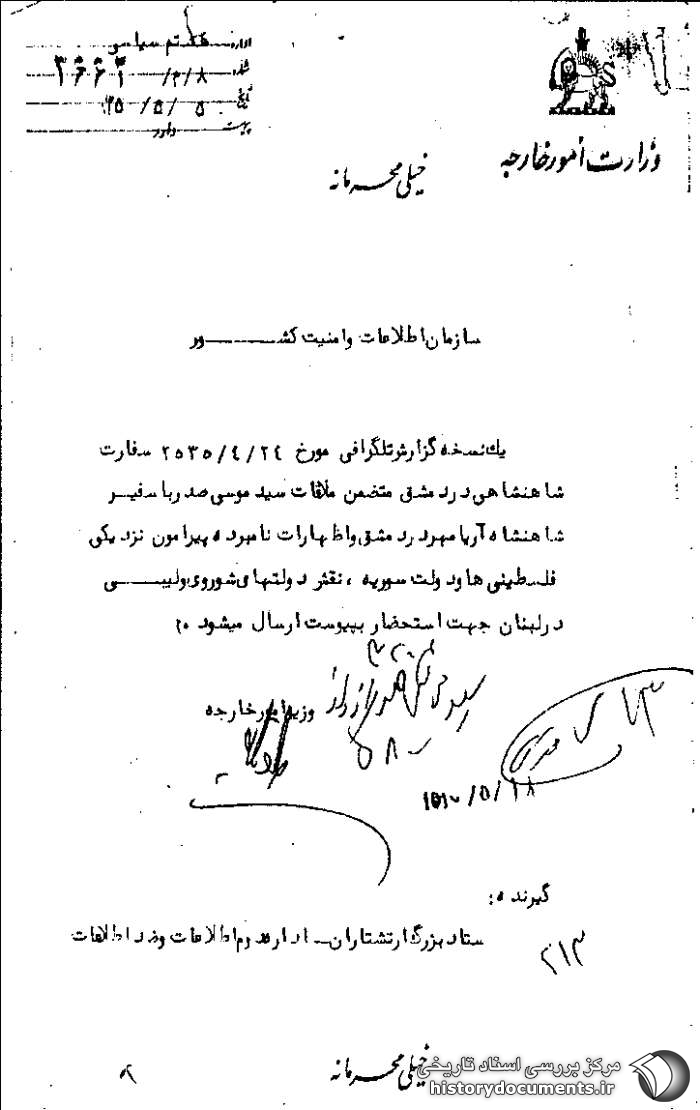 وزارت امور خارجه
اداره هشتم سیاسی
شماره ۳۶۶۴ /۳/۸
تاریخ ۳۵/۵/۵
پیوست دارد
خیلی محرمانه
سازمان اطلاعات و امنیت کشـــــور
یک نسخه گزارش تلگرافی مورخ ۲۵۳۵/۴/۲۴ سفارت
شاهنشاهی در دمشق متضمن ملاقات سید موسی صدر با سفیر
شاهنشاه آریامهر در دمشق و اظهارات نامبرده پیرامون نزدیکی
فلسطینی ها و دولت سوریه ، نقش دولتهای شوروی و لیبـــی
در لبنان جهت استحضار به پیوست ارسال میشود .
وزیر امور خارجه
گیرنده :
ستاد بزرگ ارتشتاران ـ اداره دوم اطلاعات و ضد اطلاعات
۲۱۳
خیلی محرمانه
مرکز بررسی اسناد تاریخی
historydocuments.ir